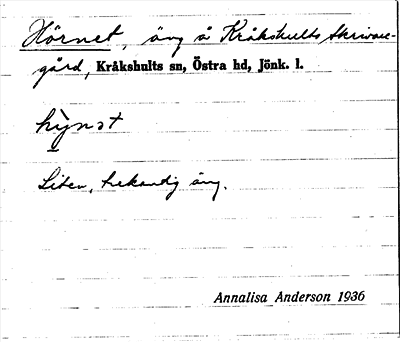 Hörnet, äng å Kråkshults skrivare-
gård, Kråkshults sn, Östra hd, Jönk. l.
Liten, trekantig äng.
Annalisa Anderson 1936